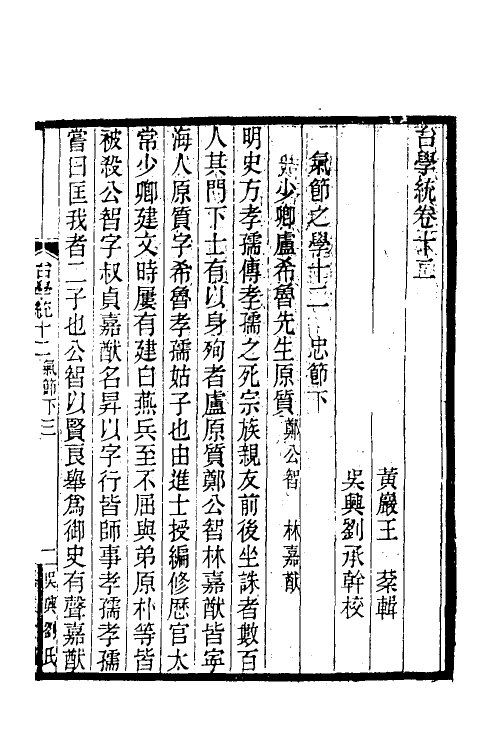 台學統卷十三
黃巖王 棻輯
吳興劉承幹校
氣節之學十二 忠節下
少卿盧希魯先生原質 鄭公智 林嘉猷
明史方孝孺傳孝孺之死宗族親友前後坐誅者數百
人其門下士有以身殉者盧原質鄭公智林嘉猷皆寧
海人原質字希魯孝孺姑子也由進士授編修歷官太
常少卿建文時屢有建白燕兵至不屈與弟原朴等皆
被殺公智字叔貞嘉猷名昇以字行皆師事孝孺孝孺
嘗曰匡我者二子也公智以賢良舉爲御史有聲嘉猷
台學統十三 氣節下三 一 吳興劉氏